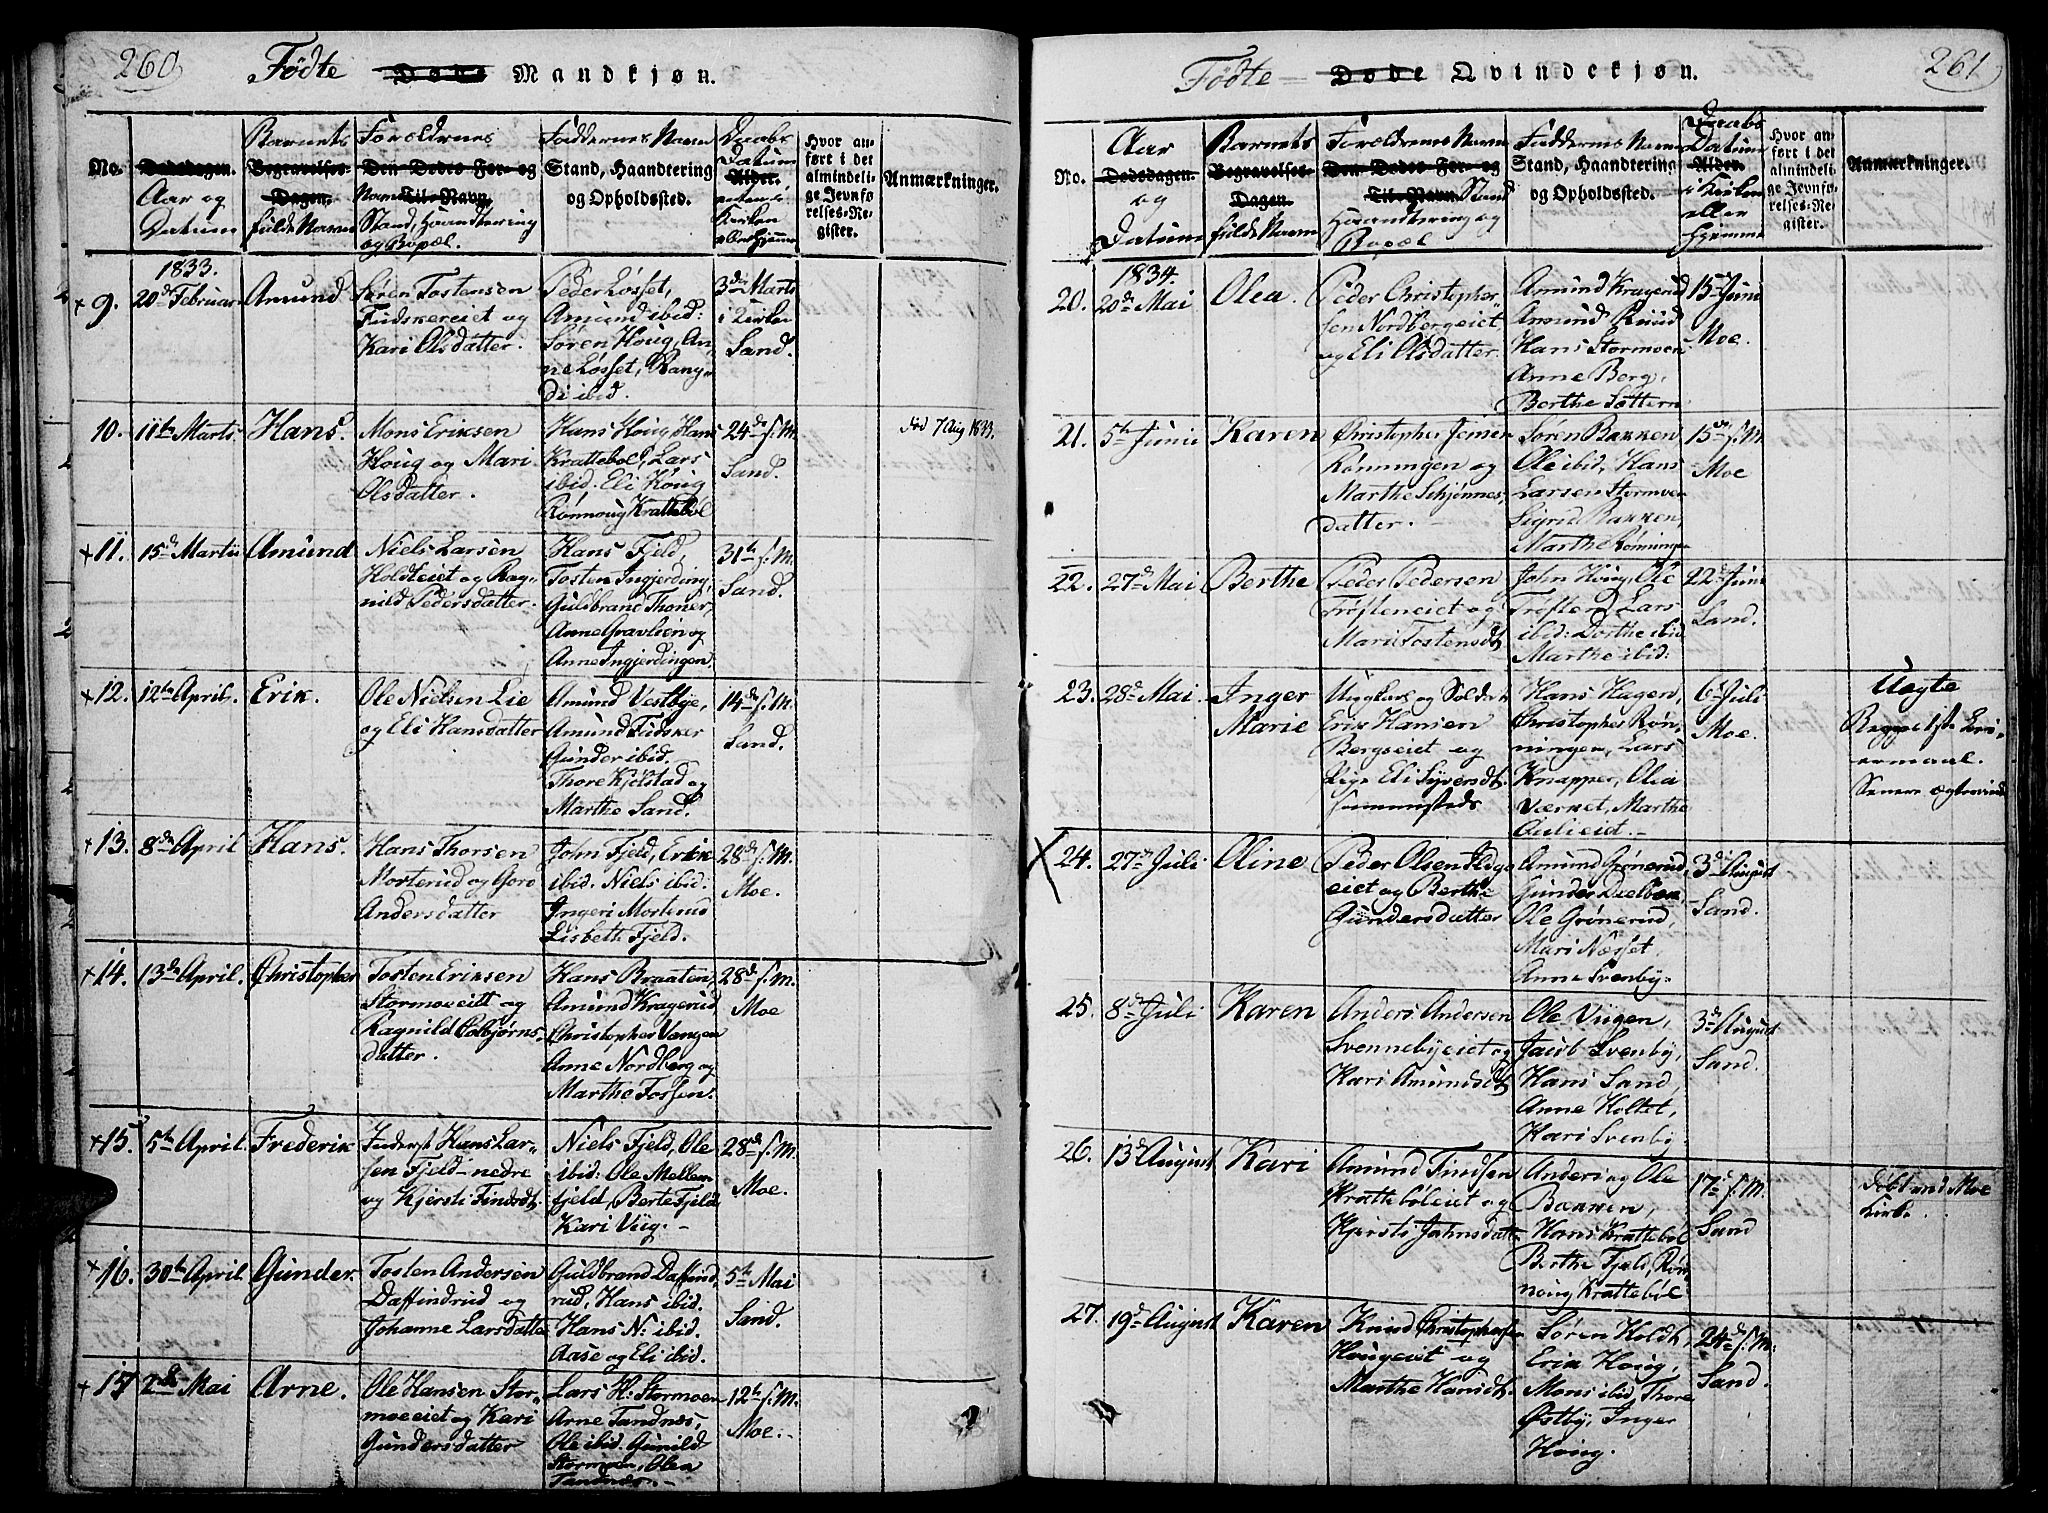 260
Födte Døde Mandkjøn.
No.
Dødsdagen.
Aar og
Datum
Barnets
Begravelses-
Dagen.
fulde Navn
Forældrenes
Den Dødes For- og
Navn Til-Navn,
Stand, Haandtering
og Bopæl.
Faddernes Navn
Stand, Haandtering
og Opholdssted.
Daabs
Datum
Alder.
enten i
Kirken
eller hjemme
Hvor an-
ført i det
almindeli-
ge Jevnfø-
relses-Re-
gister.
Anmærkninger.
1833.
9. 20de Februar
Amund
Søren Tostensen
Fudskereiet og
Kari Olsdatter.
Peder Løsset,
Amund ibid:
Søren Houg, An-
ne Løsset, Rang-
di ibid.
3de Marts
i Kirken
Sand.
10. 11te Marts
Hans.
Mons Eriksen
Houg og Mari
Olsdatter.
Hans Houg, Hans
Krattebøl, Lars
ibid. Eli Houg
Rønnoug Krattebøl
24de s. M.
Sand.
død 7 Aug 1833.
11. 15de Martii
Amund
Niels Larsen
Holdteiet og Rag-
nild Pedersdatter.
Hans Fjeld,
Tosten Ingjerding,
Guldbrand Thoner,
Anne Gravlien og
Anne Ingjerdingen
31te s. M.
Sand.
12. 12te April.
Erik.
Ole Nielsen Lie
og Eli Hansdatter
Amund Vestbye,
Amund Fudsker
Gunder ibid.
Thore Kjølstad og
Marthe Sand.
14de s. M.
Sand.
13. 8de April
Hans.
Hans Thorsen
Morterud og Goro
Andersdatter
John Fjeld, Erik
ibid. Niels ibid.
Ingeri Morterud
Lisbeth Fjeld.
28de s. M.
Moe.
14. 13de April.
Christopher
Tosten Eriksen
Stormoeeiet og
Ragnild Esbjørns-
datter.
Hans Braaten,
Amund Kragerud
Christopher Vangen
Anne Nordberg og
Marthe Fossen.
28de s. M.
Moe
15. 5te April.
Frederik
Inderst Hans Lar-
sen Fjeld nedre
og Kjersti Findsdt.
Niels Fjeld, Ole
ibid: Ole Mellem-
fjeld, Berte Fjeld
Kari Viig.
28de s. M.
Moe.
16. 30te April
Gunder.
Tosten Andersen
Daffindrud og
Johanne Larsdatter
Guldbrand Daffind-
rud, Hans ibid.
Hans N: ibid.
Aase og Eli ibid.
5te Mai
Sand.
17 2den Mai
Arne.
Ole Hansen Stor-
moeeiet og Kari
Gundersdatter
Lars H. Stormoen
Arne Tandnæs,
Ole ibid. Gunild
Stormoen, Olea
Tandnæs.
12te s. M.
Moe.
261
Födte Døde Qvindekjøn.
No.
Aar
Dødsdagen.
og
Datum
Barnets
Begravelses-
Dagen.
fulde Navn
Forældrenes Navn
Den Dødes For- og
Til-Navn. Stand
Haandtering og
Bopæl
Faddernes Navn
Stand, Haandtering
og Opholdssted.
Daabs
Datum
Alder.
i Kirken
eller
hjemme
Hvor an-
ført i det
almindeli-
ge Jevnfø-
relses-Re-
gister.
Anmærkninger.
1834.
20. 20de Mai
Olea.
Peder Christopher-
sen Nordbergeiet
og Eli Olsdatter
Amund Kragerud
Amund Ruud
Hans Stormoen
Anne Berg,
Berthe Sættern
15de Juni
Moe.
21. 5te Junii
Karen
Christopher Jensen
Rønningen og
Marthe Schjønnes-
datter.
Søren Bakken
Ole ibid, Hans
Larsen Stormoen
Sigrid Bakken,
Marthe Rønningen
15de s. M.
Moe
22. 27de Mai
Berthe
Peder Pedersen
Trøfteneiet og
Mari Tostensdt.
John Houg, Ole
Trøften, Lars
ibid: Dorthe ibid
Marthe ibid:
22de Juni
Sand.
23. 28de Mai
Inger
Marie
Ungkarl og Soldat
Erik Hansen
Bergseiet og
Pige Eli Syversdt.
Hans Hagen,
Christopher Røn-
ningen, Lars
Knapper, Olia
Værket, Marthe
Julieiet.
6te Juli
Moe.
Uægte
Begges 1ste Leier-
maal.
24. 27de Juli
Oline
Peder Olsen
eiet og Berthe
Gundersdatter
Amund Grønerud,
Gunder Dælbek,
Ole Grønerud,
Mari Næsset
Anne Svenby.
3de August
Sand.
25. 8de Juli
Karen
Anders Andersen
Svennebyeiet og
Kari Amundsdt.
Ole Viigen,
Jacob Svenby,
Hans Sand,
Anne Holtet,
Kari Svenby
3de August
Sand.
26. 13de August
Kari
Amund Findsen
Krattebøleiet og
Kjersti Johnsdatter
Anders og Ole
Bakken,
Hans Krattebøl
Berthe Fjeld, Røn-
noug Krattebøl
17de s. M.
Sand
Döbt ved Moe
Kirke
27. 19de August
Karen
Knud Christophersen
Hougeiet og
Marthe Hansdt.
Søren Holdt,
Erik Houg,
Mons ibid, Thore
Østby, Inger
Houg.
24de s. M:
Sand.